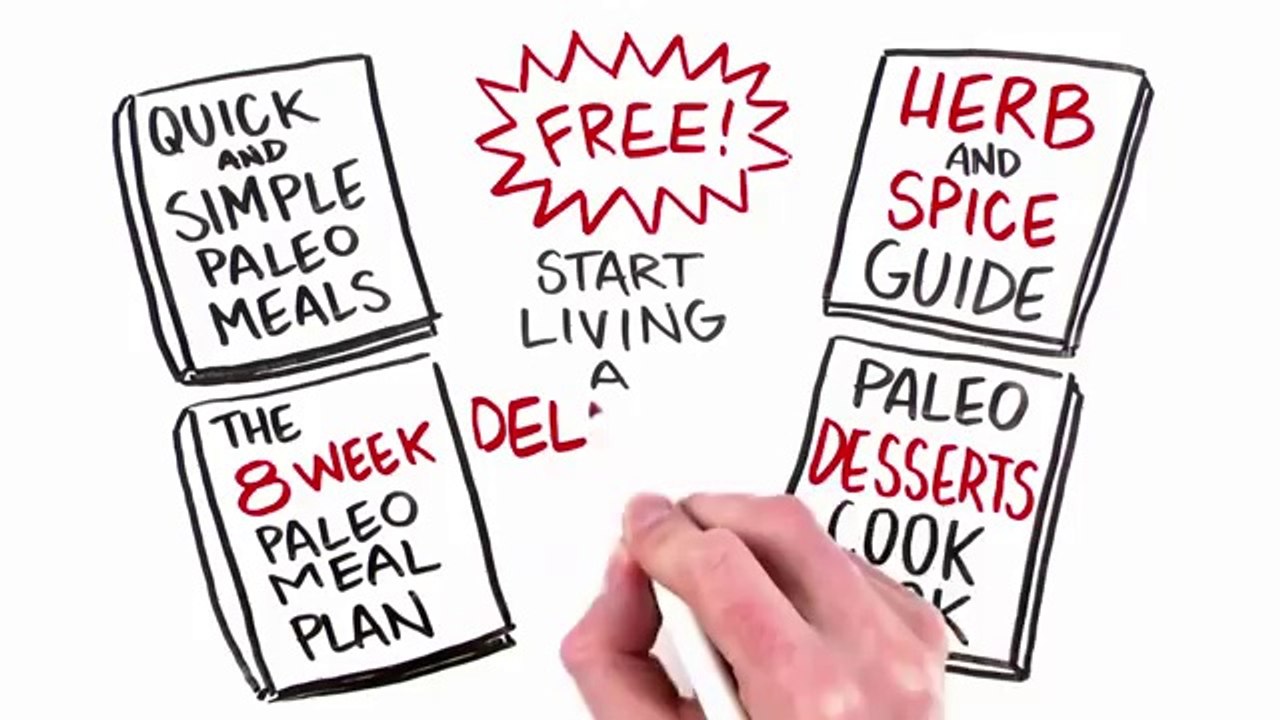 QUICK
AND
SIMPLE
PALEO
MEALS
FREE!
START
LIVING
A
DEL
HERB
AND
SPICE
GUIDE
THE
8 WEEK
PALEO
MEAL
PLAN
PALEO
DESSERTS
COOK